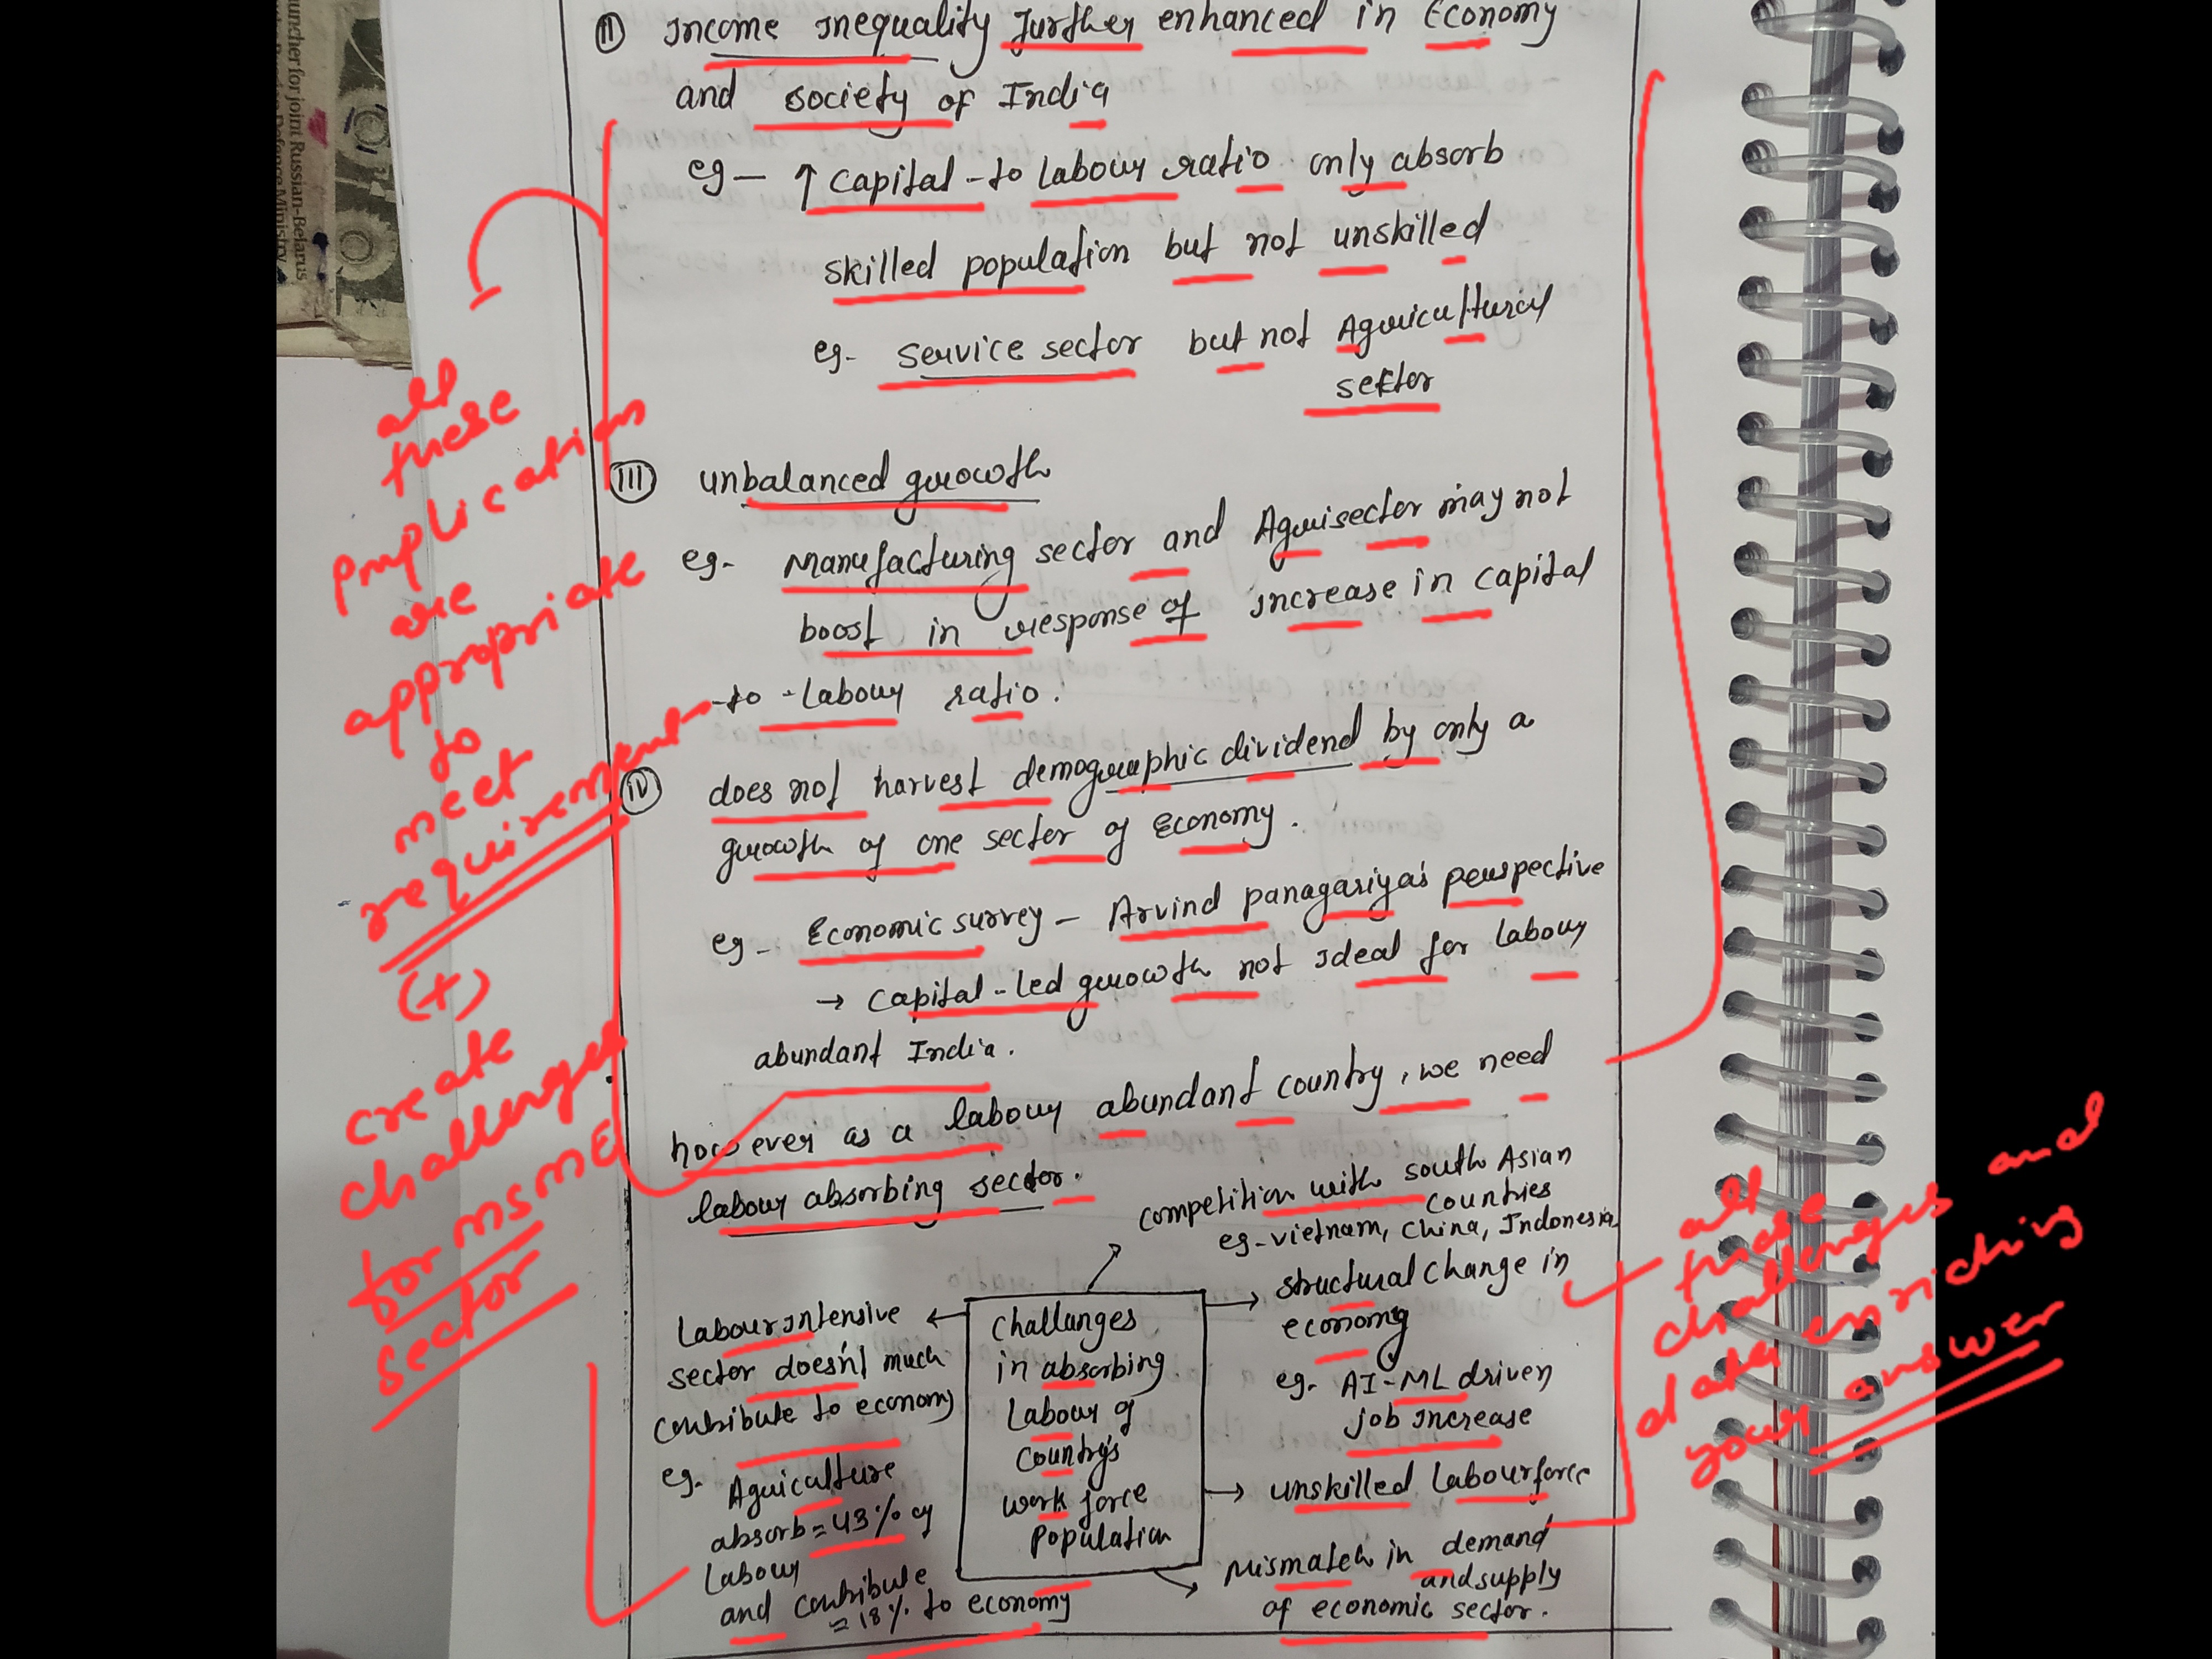 uncher for joint Russian-Belarus
Defence Ministry
II income inequality further enhanced in Economy
and society of India
eg - ↑ capital-to labour ratio only absorb
skilled population but not unskilled
eg. service sector but not Agricultural
sector
III unbalanced growth
eg. Manufacturing sector and Agrisector may not
boost in response of increase in capital
-to-labour ratio.
IV does not harvest demographic dividend by only a
growth of one sector of Economy.
eg - Economic survey - Arvind panagariya's perspective
→ capital-led growth not ideal for labour
abundant India.
however as a labour abundant country, we need
labour absorbing sector.
competition with south Asian
countries
eg-vietnam, China, Indonesia
structural change in
economy
eg. AI-ML driven
job increase
unskilled labourforce
Mismatch in demand
and supply
of economic sector.
Challanges
in absorbing
Labour of
country's
work force
population
Labour intensive
sector doesn't much
contribute to economy
eg. Agriculture
absorb = 43% of
Labour
and contribute
= 18% to economy
all
these
implications
are
appropriate
to
meet
requirement
(+)
create
challenges
for MSME
sector
all
these
challenges and
data enriching
your answer